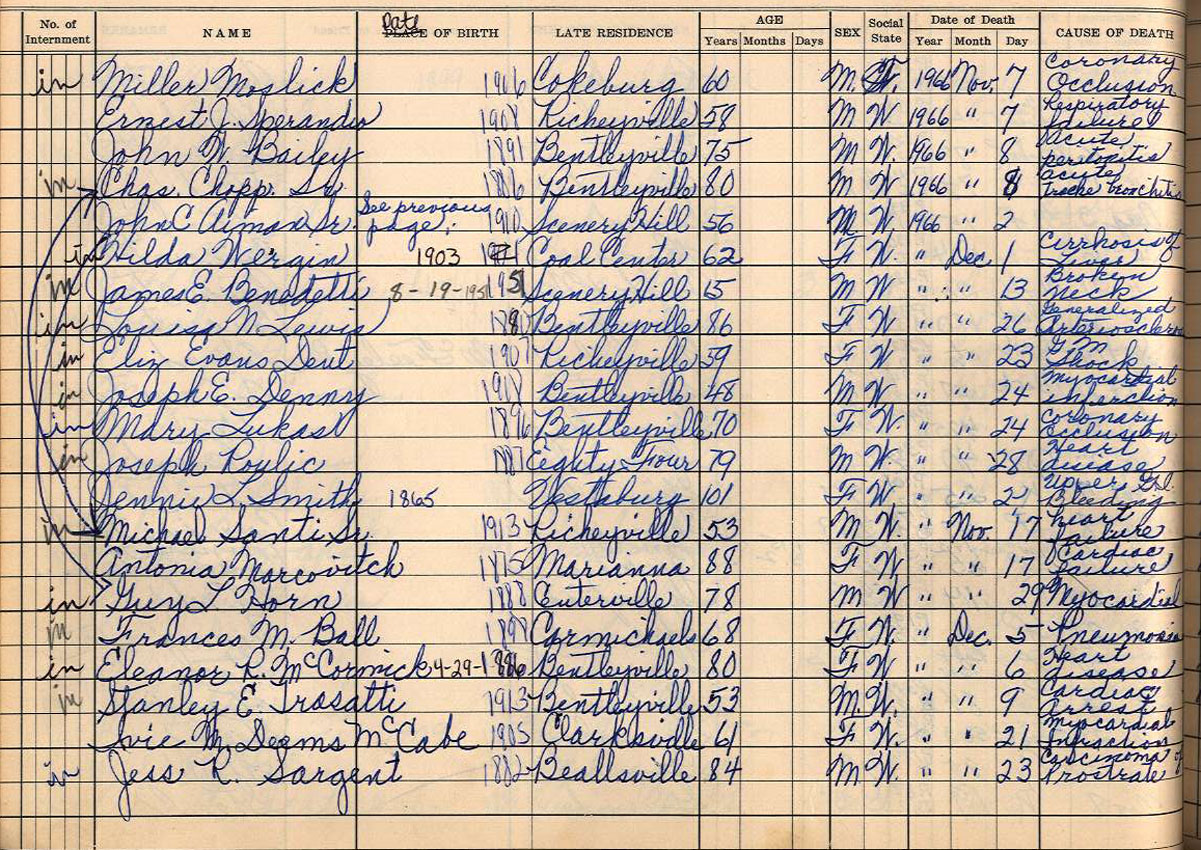 No. of Internment NAME Date PLACE OF BIRTH LATE RESIDENCE AGE Years Months Days SEX Social State Date of Death Year Month Day CAUSE OF DEATH
in Miller Moslick 1906 Cokeburg 60 M. W. 1966 Nov. 7 Coronary Occlusion
Ernest J. Sperandio 1908 Richeyville 58 M W 1966 " 7 Respiratory failure
John W. Bailey 1891 Bentleyville 75 M W. 1966 " 8 Acute peritonitis
in Chas. Chopp. Sr. 1886 Bentleyville 80 M W. 1966 " 8 acute Trache bronchitis
John C. Aiman Sr. See previous page. 1910 Scenery Hill 56 M W. 1966 " 2
in Hilda Wergin 1903 Coal Center 62 F W. " Dec. 1 Cirrhosis of Liver
in James E. Benedetti 8-19-1951 1951 Scenery Hill 15 M W " 13 Broken Neck
in Louisa N. Lewis 1880 Bentleyville 86 F W " " 26 Generalized Arterioscleros
in Eliz Evans Dent 1907 Richeyville 59 F W " " 23 Shock
in Joseph E. Denny 1918 Bentleyville 48 M W. " " 24 Myocardial infarction
in Mary Lukast 1896 Bentleyville 70 F W. " " 24 Coronary Occlusion
in Joseph Roylic 1887 Eighty Four 79 M W. " " 28 Heart disease
Jennie L. Smith 1865 101 F W. " " Upper G.I. Bleeding
in Michael Santi Sr. 1913 Richeyville 53 M W. " Nov. 17 heart failure
Antonia Marcovitch Marianna 88 F W " " 17 Cardiac failure
in Guy L Horn 1888 Centerville 78 M W " " 29 Myocardial
in Frances M. Ball 1898 Carmichaels 68 F W. " Dec. 5 Pneumonia
in Eleanor R. McCormick 4-29-1886 Bentleyville 80 F W. " " 6 Heart disease
in Stanley E. Trosatti 1913 Bentleyville 53 M. W. " " 9 Cardiac Arrest
Ivie M. Deems McCabe 1905 Clarksville 61 F W. " " 21 Myocardial Infarction
in Jess R. Sargent 1882 Beallsville 84 M W. " " 23 Carcinoma of Prostrate